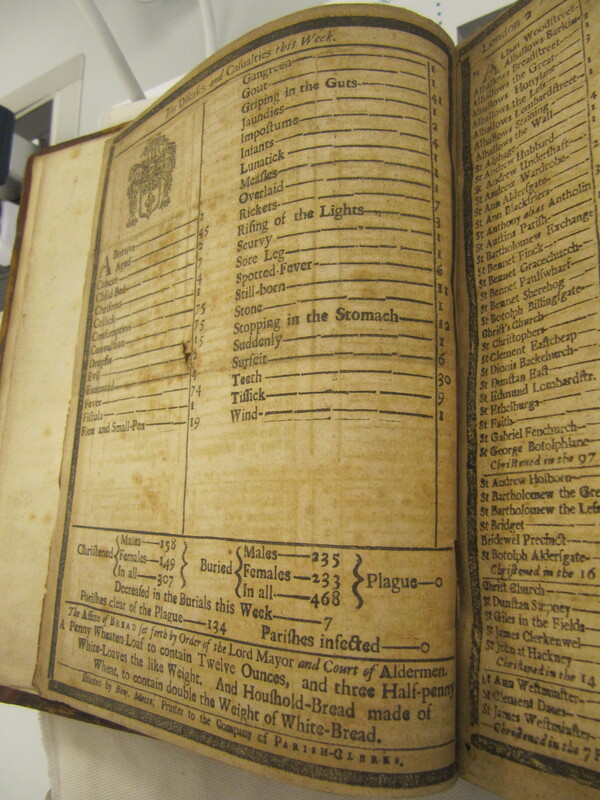 The Diseases and Casualties this Week.
Abortive 2
Aged 45
Cancer 2
Child Bed 7
Chrisoms 4
Collick 1
Consumption 75
Convulsion 75
Dropsie 15
Evil 2
Executed 4
Fever 74
Fistula 1
Flox and Small-Pox 19
Gangreen 1
Gout 1
Griping in the Guts 41
Jaundies
Impostume 2
Infants
Lunatick 1
Measles 1
Overlaid 1
Rickets 7
Rising of the Lights 3
Scurvy 1
Sore Leg 1
Spotted-Fever 6
Still-born 11
Stone 1
Stopping in the Stomach 12
Suddenly 1
Surfeit 6
Teeth 30
Tissick 9
Wind 1
Christened { Males—158 Females—149 In all—307 } Buried { Males—235 Females—233 In all—468 } Plague—0
Decreased in the Burials this Week—7
Parishes clear of the Plague—134 Parishes infected—0
The Assize of BREAD set forth by Order of the Lord Mayor and Court of Aldermen.
A Penny Wheaten Loaf to contain Twelve Ounces, and three Half-penny
White-Loaves the like Weight. And Houshold-Bread made of
Wheat, to contain double the Weight of White-Bread.
Printed by Benj. Motte, Printer to the Company of PARISH-CLERKS.
London 2
Alban Woodstreet
Alhallows Barkin
Alhallows Breadstreet
Alhallows the Great
Alhallows Honylane
Alhallows the Less
Alhallows Lombardstreet
Alhallows Staining
Alhallows the Wall
St Alphage
St Andrew Hubbard
St Andrew Undershaft
St Andrew Wardrobe
St Ann Aldersgate
St Ann Blackfriers
St Anthony alias Antholin
St Austins Parish
St Bartholomew Exchange
St Bennet Finck
St Bennet Gracechurch
St Bennet Paulswharf
St Bennet Sherehog
St Botolph Billingsgate
Christ's Church
St Christophers
St Clement Eastcheap
St Dionis Backchurch
St Dunstan East
St Edmund Lombardstr.
St Ethelburga
St Faith
St Gabriel Fenchurch
St George Botolphlane
Christened in the 97
St Andrew Holborn
St Bartholomew the Gre
St Bartholomew the Less
St Bridget
Bridewel Precinct
St Botolph Aldersgate
Christened in the 16
Christ Church
St Dunstan Stepney
St Giles in the Fields
St James Clerkenwel
St John at Hackney
Christened in the 14
St Ann Westminster
St Clement Danes
St James Westminster
Christened in the 7